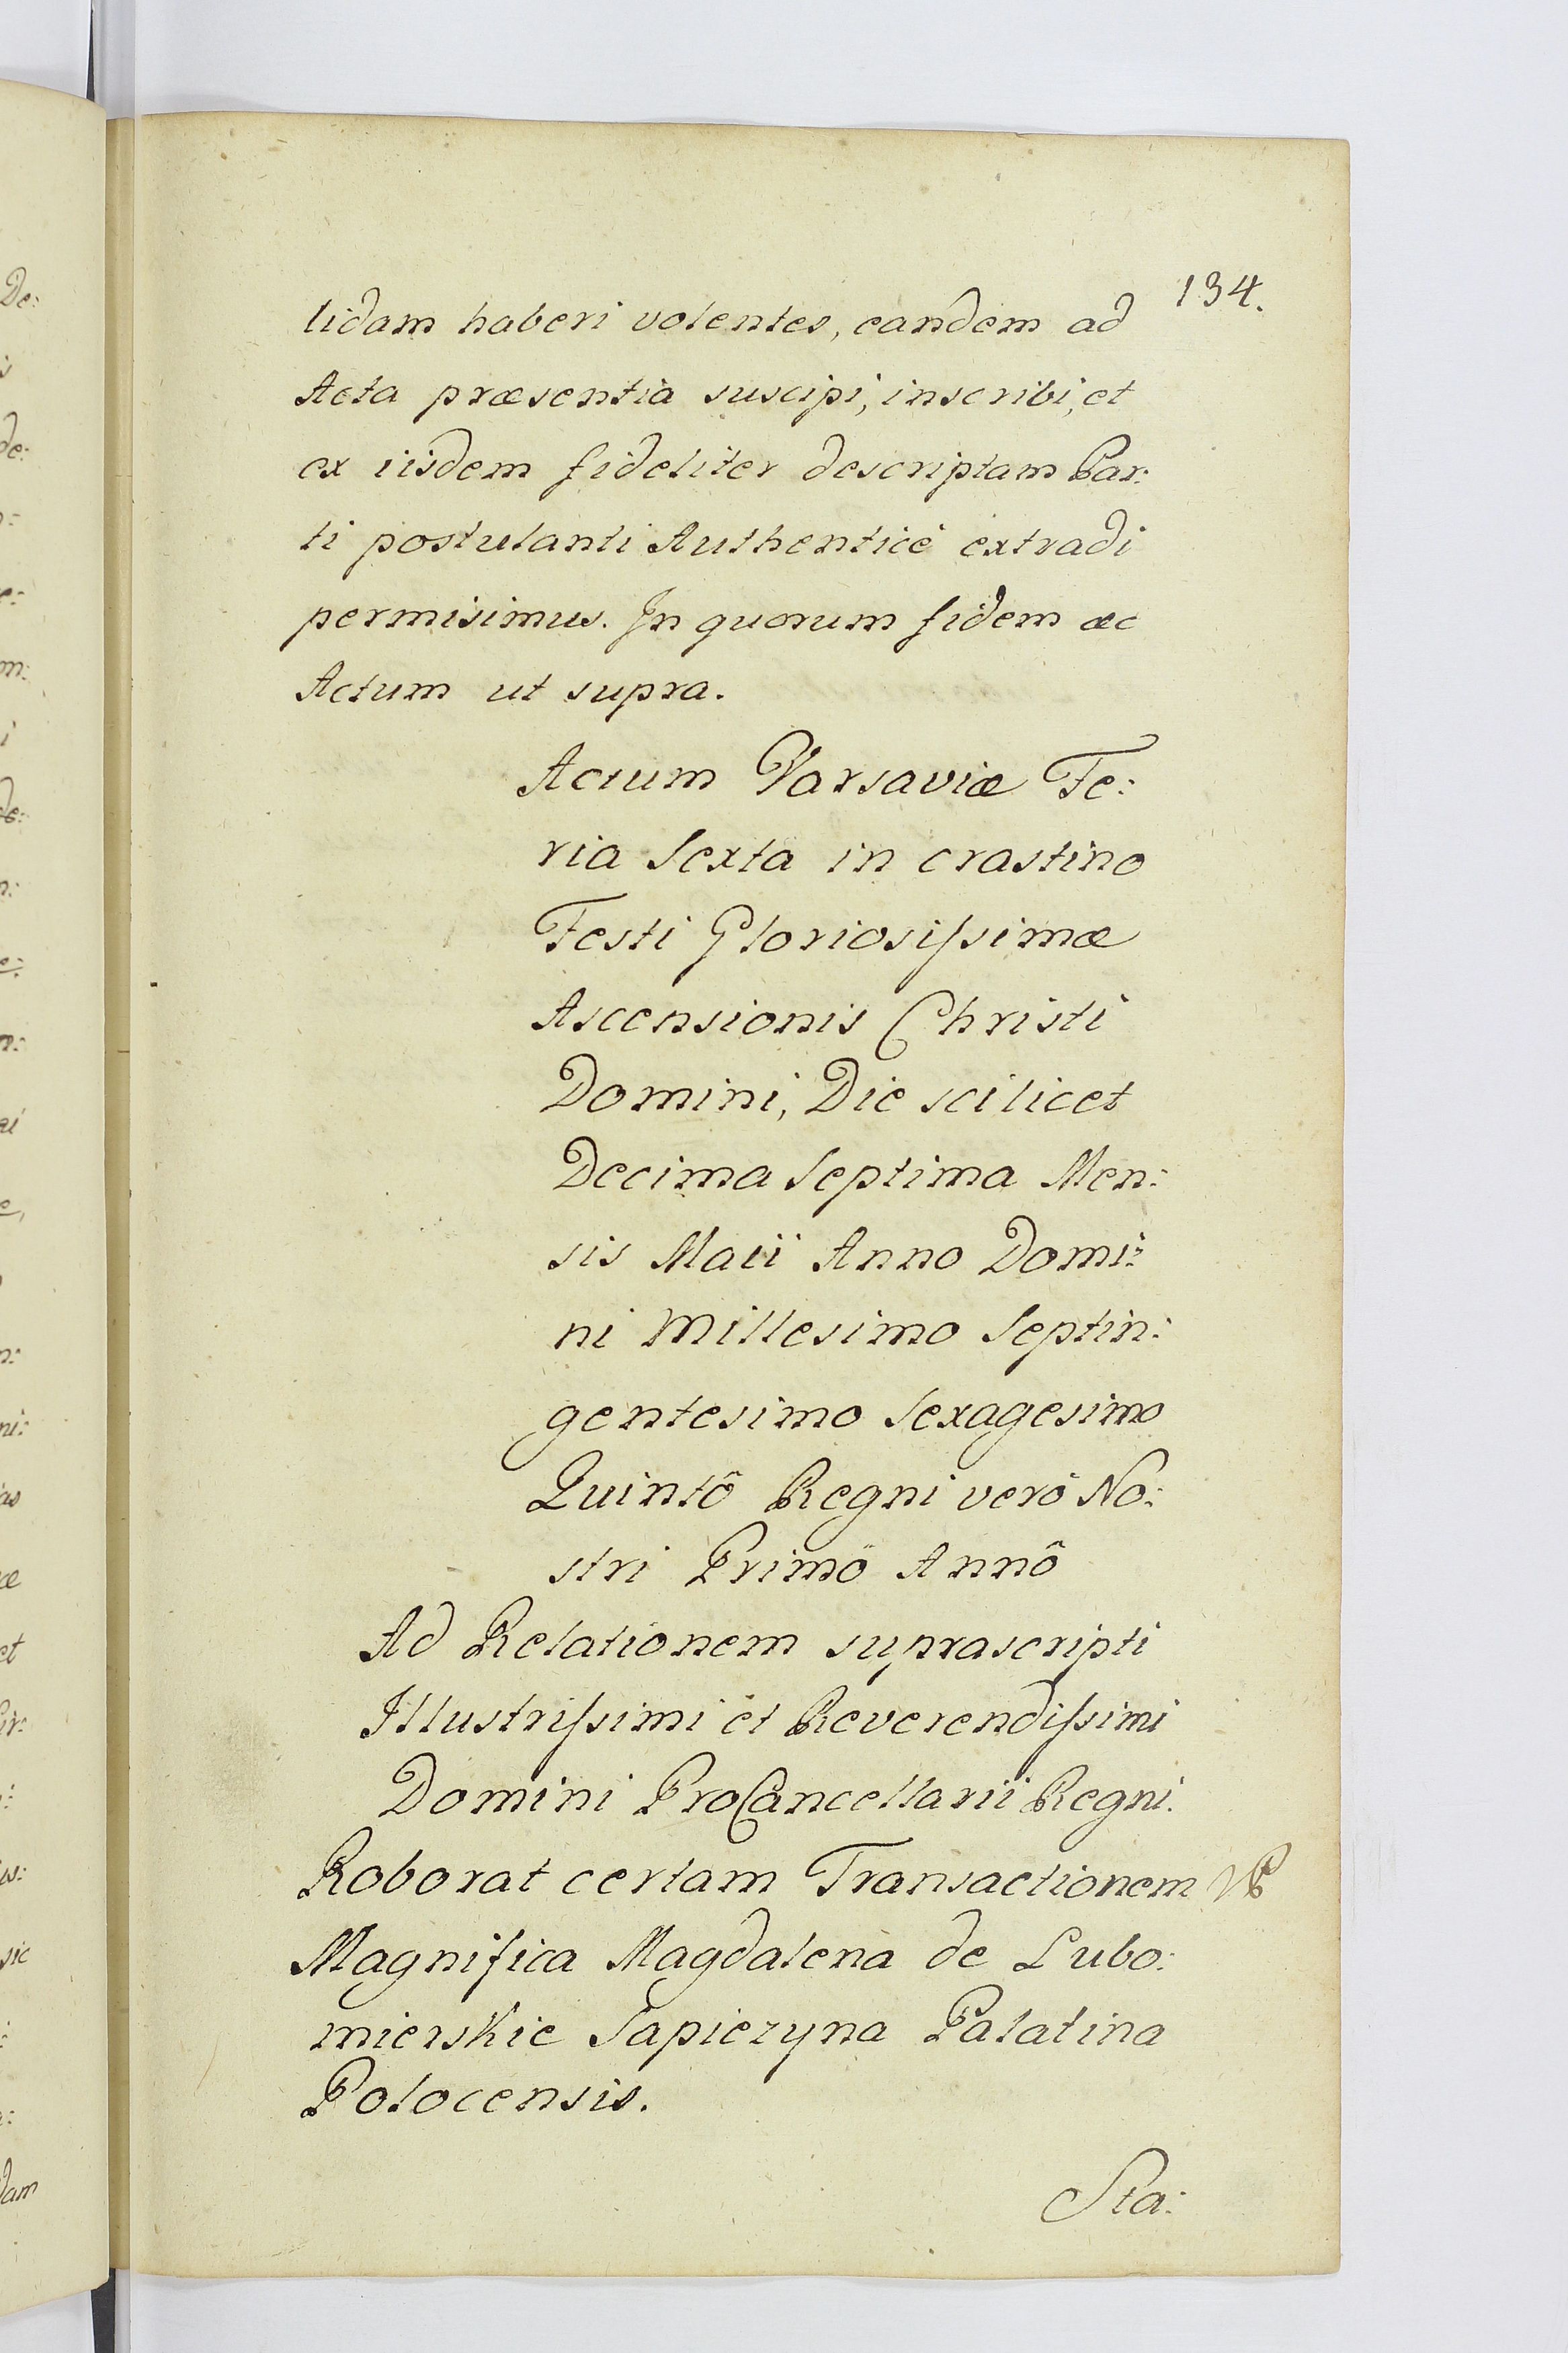 134.
lidam haberi volentes, eandem ad
Acta præsentia suscipi, inscribi, et
ex iisdem fideliter descriptam Par:
ti postulanti Authenticè extradi
permisimus. In quorum fidem æc
Actum ut supra.
Actum Varsaviæ Fe:
ria Sexta in crastino
Festi Gloriosissimæ
Ascensionis Christi
Domini, Die scilicet
Decima Septima Men:
sis Maii Anno Domi:
ni Millesimo Septin:
gentesimo Sexagesimo
Quintô Regni verò No:
stri Primô Annô
Ad Relationem suprascripti
Illustrissimi et Reverendissimi
Domini ProCancellarii Regni.
Roborat certam Transactionem
Magnifica Magdalena de Lubo:
mierskie Sapiezyna Palatina
Polocensis.
Sta: